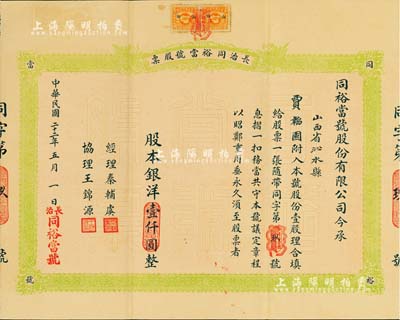 上海陽明拍賣
長治同裕當號股票
同
當
裕
號
同裕當號股份有限公司今承
山西省沁水縣
賈韜園附入本號股份壹股理合填
給股票一張隨帶同字第 號
息摺一扣務當共守本號議定章程
以昭鄭重用垂永久須至股票者
股本銀洋壹仟圓整
經理秦輔虞
協理王錦源
中華民國二十三年五月一日
長治同裕當號
同字第
號
同字第
號
上海陽明拍賣